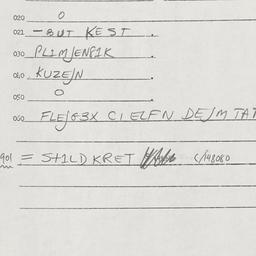 020 O
021 - BUT KEST .
030 PLIMJENPIK .
040 KUZEJN .
050 O
060 CI ELFN DEJM TAT
901 = STILD KRET